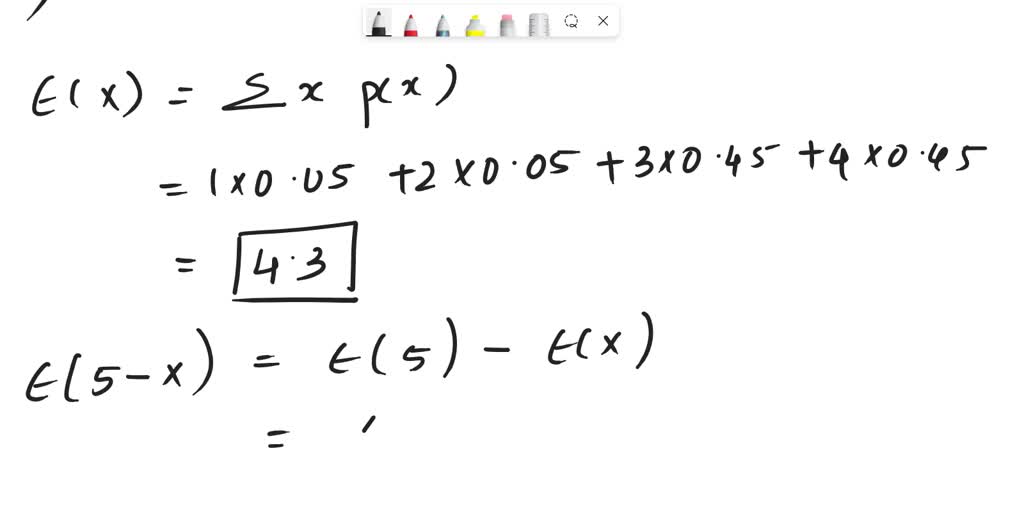 E(x) = Σ x p(x)
= 1 x 0.05 + 2 x 0.05 + 3 x 0.45 + 4 x 0.45
= 4.3
E(5 - x) = E(5) - E(x)
=